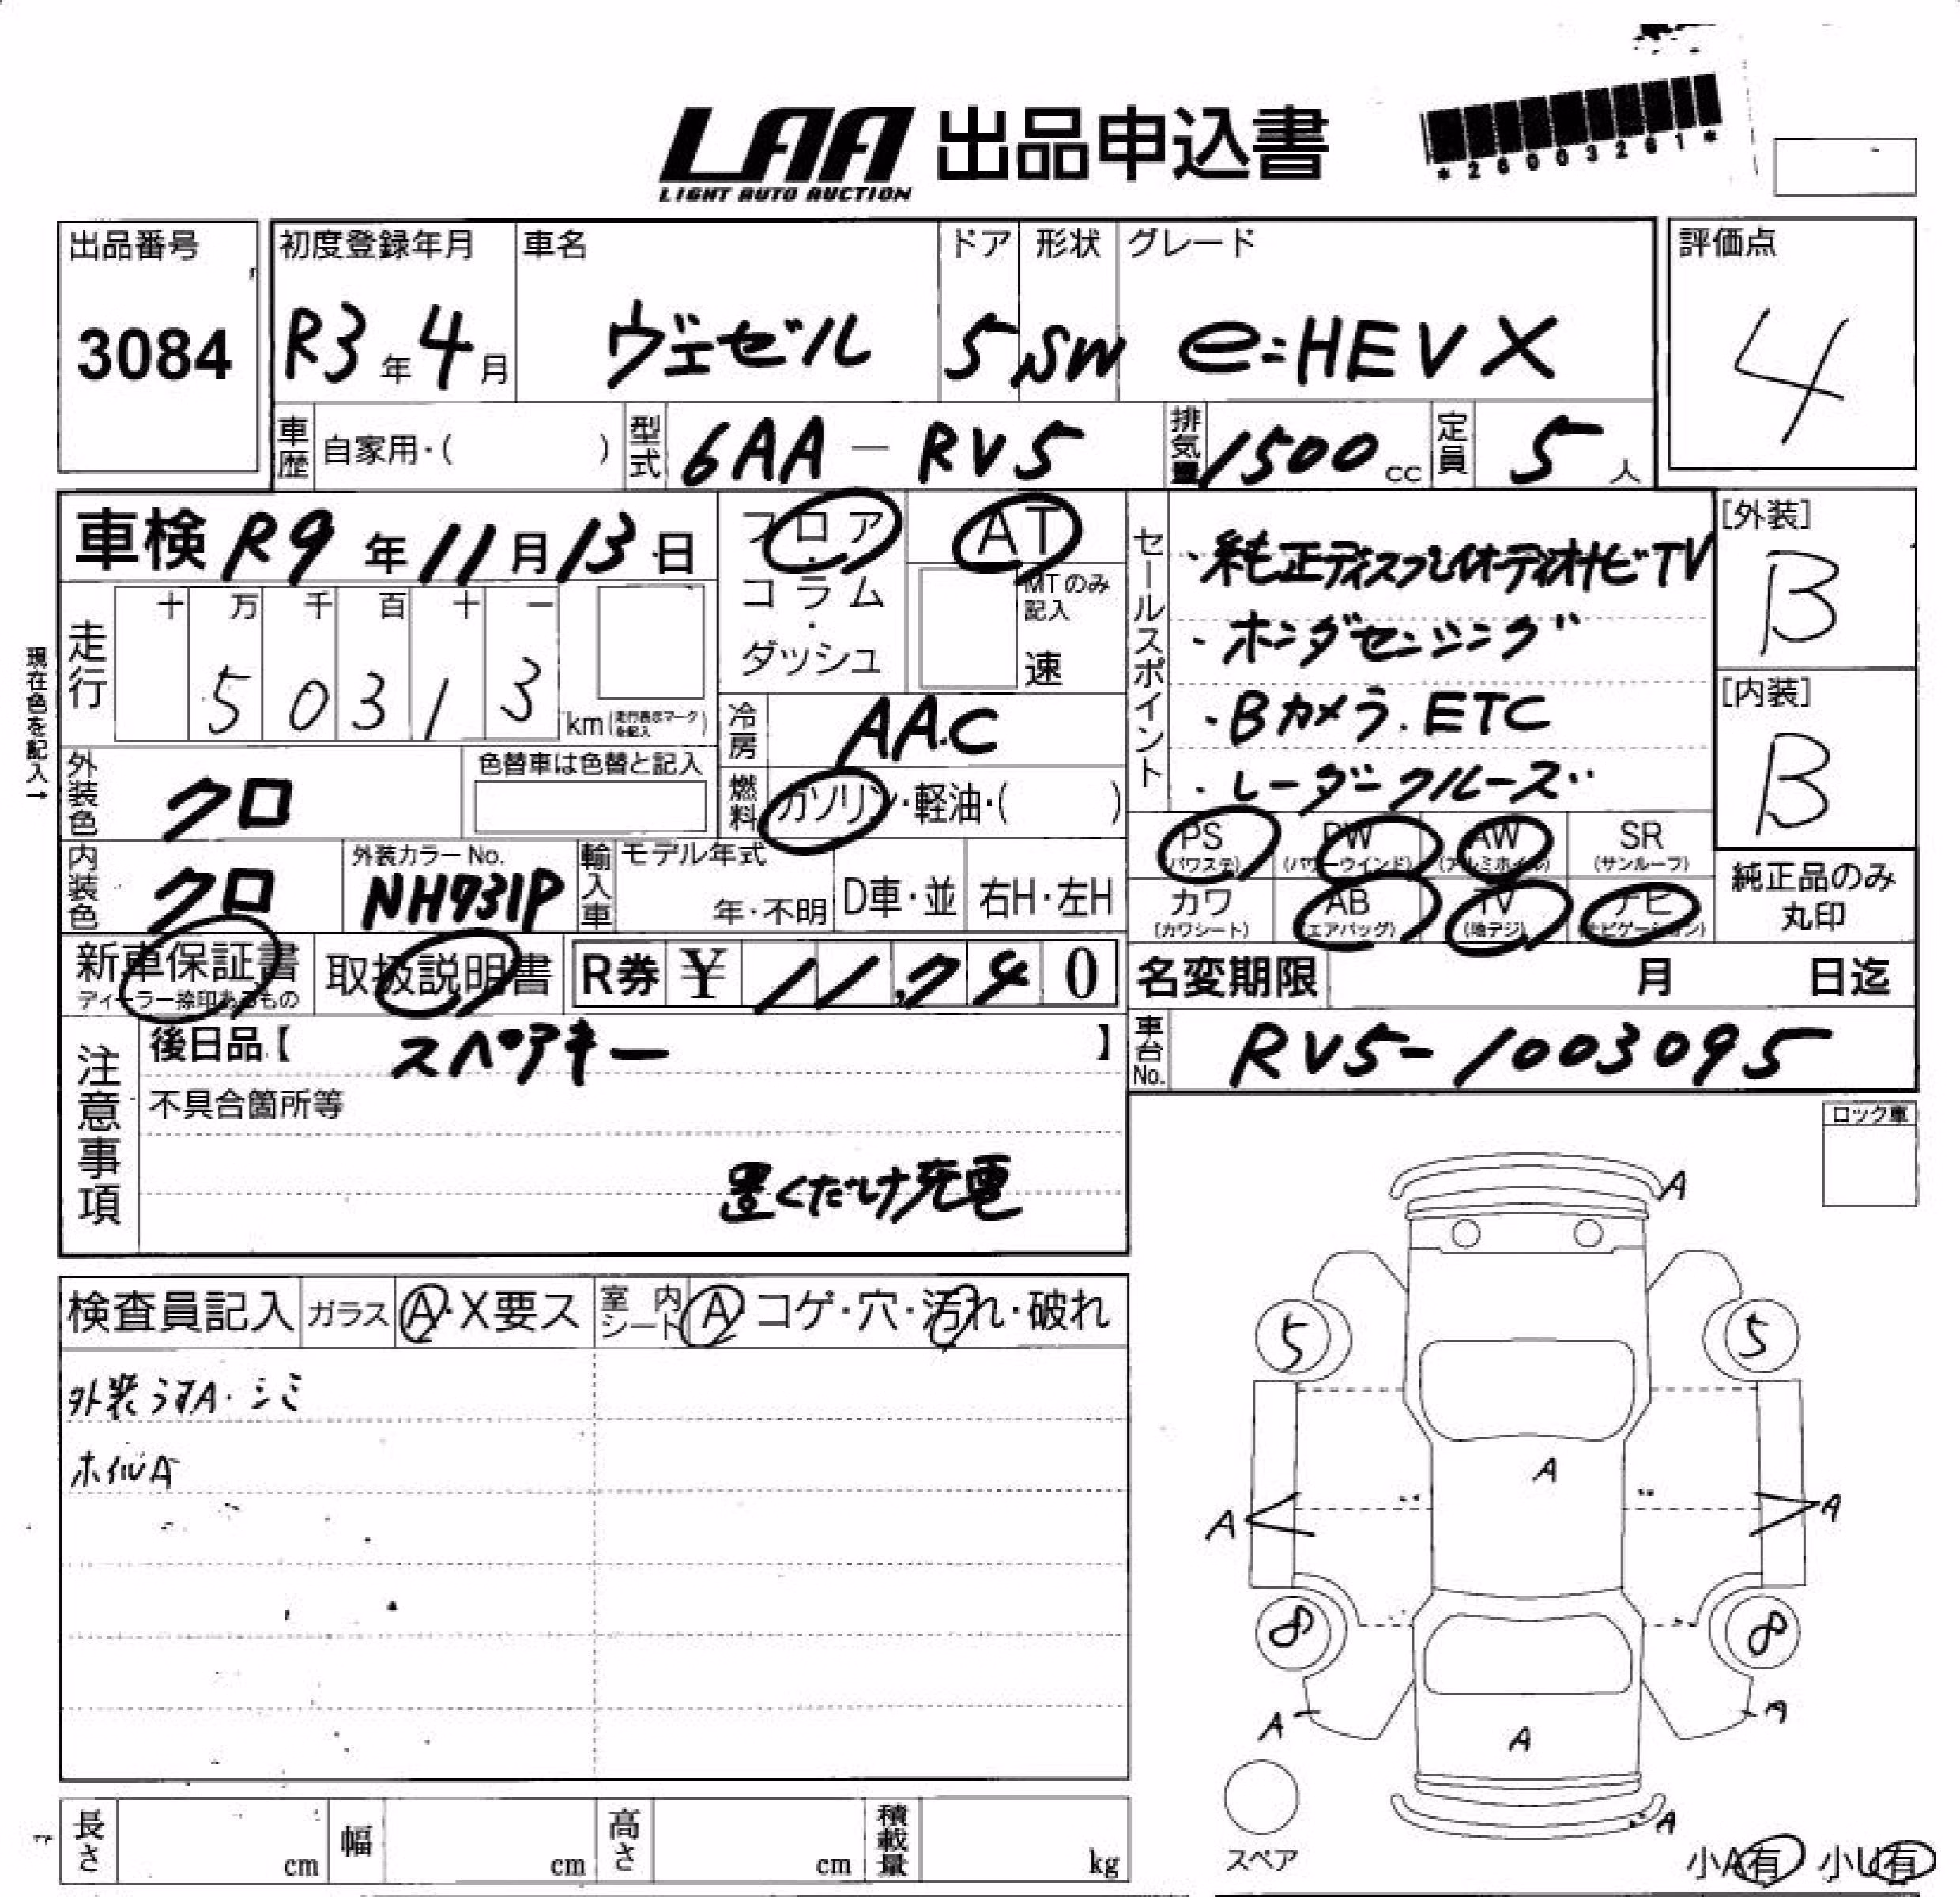 LAA 出品申込書
LIGHT AUTO AUCTION
*26003261*
出品番号
3084
初度登録年月
R3年4月
車名
ヴェゼル
ドア
5
形状
SW
グレード
e:HEV X
評価点
4
車歴 自家用・( )
型式 6AA-RV5
排気量 1500cc
定員 5人
車検 R9年11月13日
フロア・コラム・ダッシュ
AT
MTのみ記入
速
セールスポイント
・純正ディスプレイオーディオナビTV
・ホンダセンシング
・Bカメラ.ETC
・レーダークルーズ
[外装]
B
[内装]
B
現在色を記入→
走行
十 万 千 百 十 一
5 0 3 1 3
km(走行表示マークを記入)
冷房 AAC
外装色 クロ
色替車は色替と記入
燃料 ガソリン・軽油・( )
内装色 クロ
外装カラーNo.
NH731P
輸入車
モデル年式
年・不明
D車・並
右H・左H
PS (パワステ)
PW (パワーウインド)
AW (アルミホイル)
SR (サンルーフ)
カワ (カワシート)
AB (エアバッグ)
TV (地デジ)
ナビ (ナビゲーション)
純正品のみ丸印
新車保証書
ディーラー捺印あるもの
取扱説明書
R券 ¥ 11,740
名変期限 月 日迄
注意事項
後日品【 スペアキー 】
車台No. RV5-1003095
不具合箇所等
置くだけ充電
ロック車
検査員記入
ガラス A・X要ス
室内シート A コゲ・穴・汚れ・破れ
外装うすA・シミ
ホイルA
A
5 5
A
A A
8 8
A A
A
A
スペア
小A有 小U有
長さ cm
幅 cm
高さ cm
積載量 kg